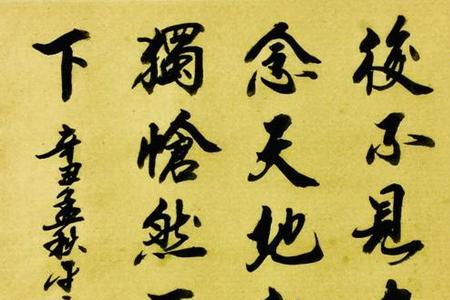 後不見
念天地
獨愴然
下
辛丑孟秋